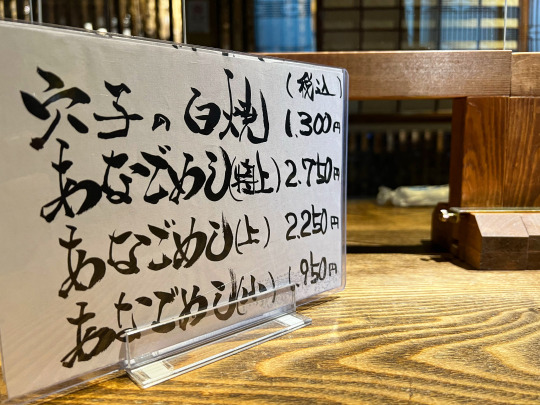 (税込)
穴子の白焼 1.300円
あなごめし(特上) 2.750円
あなごめし(上) 2.250円
あなごめし(小) .950円